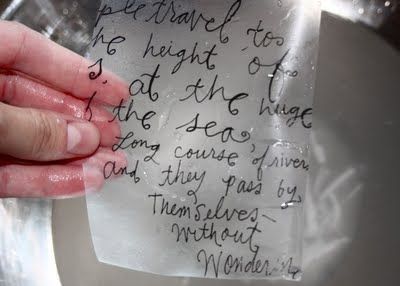 ple travel to
he height of
s, at the huge
the sea,
Long course of river
and they pass by,
Themselves—
without
Wondering